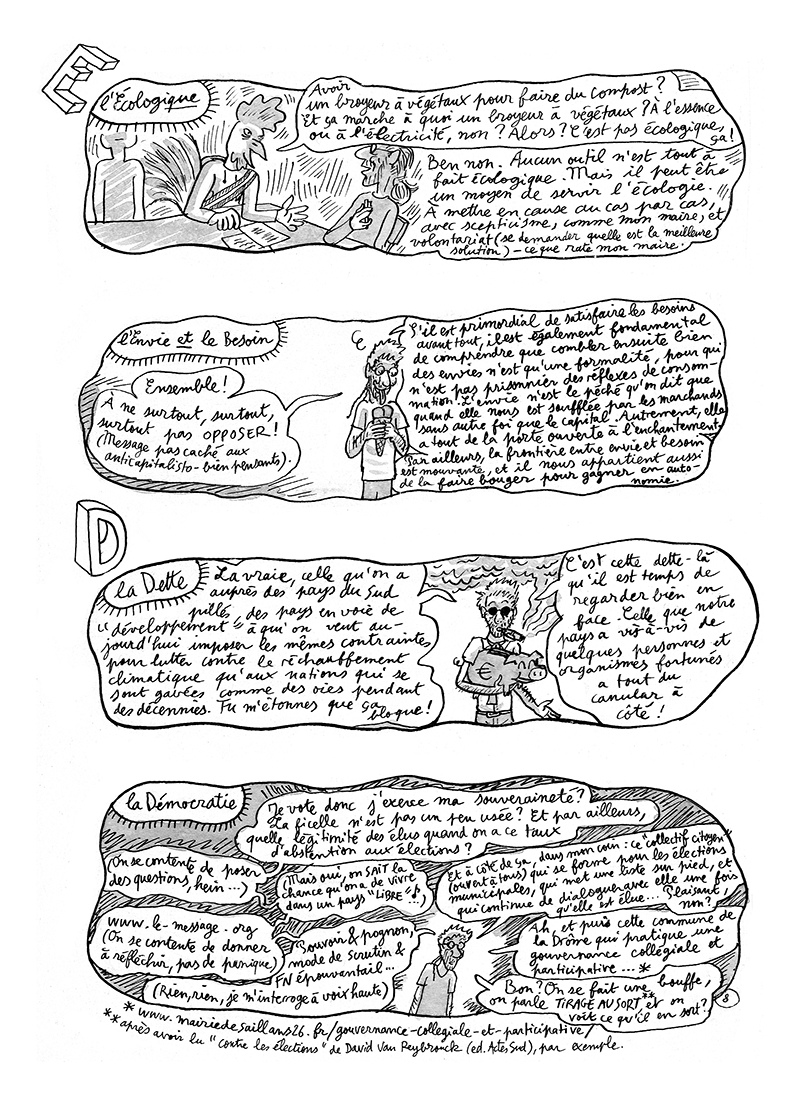 E
l'Écologique
Avoir
un broyeur à végétaux pour faire du compost ?
Et ça marche à quoi un broyeur à végétaux ? À l'essence
ou à l'électricité, non ? Alors ? C'est pas écologique,
ça !
Ben non. Aucun outil n'est tout à
fait écologique. Mais il peut être
un moyen de servir l'écologie.
À mettre en cause au cas par cas,
avec scepticisme, comme mon maire, et
volontariat (se demander quelle est la meilleure
solution) - ce que rate mon maire.
l'Envie et le Besoin
Ensemble !
À ne surtout, surtout,
surtout pas OPPOSER !
(Message pas caché aux
anticapitalisto-bien pensants).
S'il est primordial de satisfaire les besoins
avant tout, il est également fondamental
de comprendre que combler ensuite bien
des envies n'est qu'une formalité, pour qui
n'est pas prisonnier des réflexes de consom-
mation. L'envie n'est le péché qu'on dit que
quand elle nous est soufflée par les marchands
sans autre foi que le capital. Autrement, elle
a tout de la porte ouverte à l'enchantement.
Par ailleurs, la frontière entre envie et besoin
est mouvante, et il nous appartient aussi
de la faire bouger pour gagner en auto-
nomie.
D
la Dette
La vraie, celle qu'on a
auprès des pays du Sud
pillé, des pays en voie de
"développement" à qui on veut au-
jourd'hui imposer les mêmes contraintes
pour lutter contre le réchauffement
climatique qu'aux nations qui se
sont gavées comme des oies pendant
des décennies. Tu m'étonnes que ça
bloque !
€
C'est cette dette-là
qu'il est temps de
regarder bien en
face. Celle que notre
pays a vis-à-vis de
quelques personnes et
organismes fortunés
a tout du
canular à
côté !
la Démocratie
Je vote donc j'exerce ma souveraineté ?
La ficelle n'est pas un peu usée ? Et par ailleurs,
quelle légitimité des élus quand on a ce taux
d'abstention aux élections ?
(On se contente de poser
des questions, hein...)
Mais oui, on SAIT la
chance qu'on a de vivre
dans un pays "LIBRE"...
Et à côté de ça, dans mon coin : ce "collectif citoyen"
(ouvert à tous) qui se forme pour les élections
municipales, qui met une liste sur pied, et
qui continue de dialoguer avec elle une fois
qu'elle est élue... Plaisant,
non ?
www.le-message.org
(On se contente de donner
à réfléchir, pas de panique)
Pouvoir & pognon,
mode de scrutin &
FN épouvantail...
(Rien, rien, je m'interroge à voix haute)
Ah, et puis cette commune de
la Drôme qui pratique une
gouvernance collégiale et
participative... *
Bon ? On se fait une bouffe,
on parle TIRAGE AU SORT** et on
voit ce qu'il en sort ?
8
* www.mairiedesaillans26.fr/gouvernance-collegiale-et-participative/
** après avoir lu "contre les élections" de David Van Reybrouck (ed. Actes Sud), par exemple.